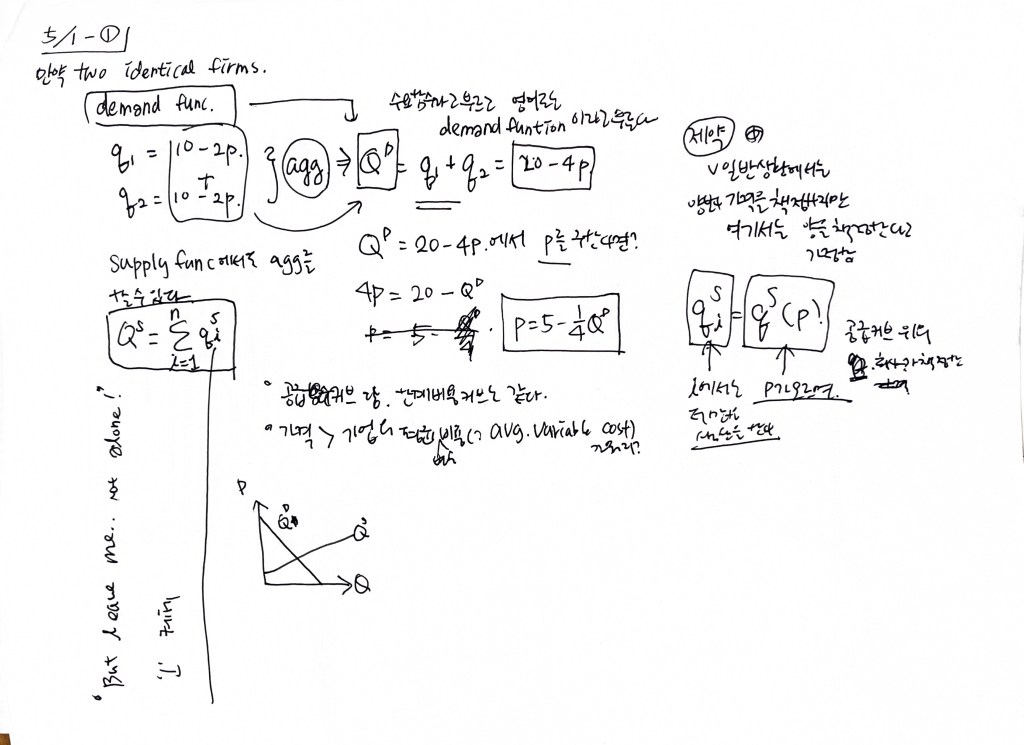 5/1-①
만약 two identical firms.
demand func.
수요함수라고 부르고 영어로는
demand funtion 이라고 부른다
q₁ = 10-2p.
+
q₂ = 10-2p.
} agg ⇒ Qᴰ = q₁ + q₂ = 20-4p
Qᴰ = 20-4p.에서 p를 구한다면?
4p = 20 - Qᴰ
p = 5 -
p = 5 - ¼Qᴰ
Supply func에서도 agg를
할수있다
Qˢ = Σⁿᵢ₌₁ qᵢˢ
공급커브랑. 한계비용커브는 같다.
가격 > 기업의 평균비용(? avg. variable cost)
P
Qᴰ
Qˢ
Q
제약
일반상황에서는
가격을 책정하지만
여기서는 양을 책정한다고
가정함
qᵢˢ = qˢ(p).
공급커브 위의
i에서는
P가오르면.
"But leave me.. not alone!"